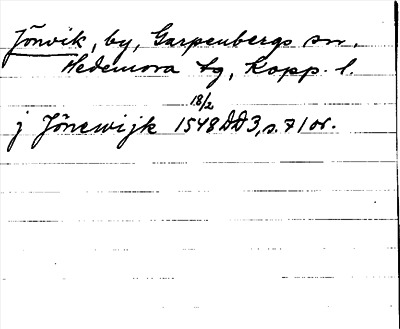 Jönvik, by, Garpenbergs sn,
Hedemora tg, Kopp. l.
18/2
j Jönewijk 1548 DD3, s. 71 or.